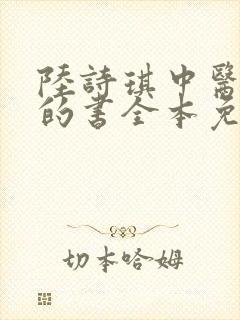 陸詩琪中醫
的書全本免
切本哈姆